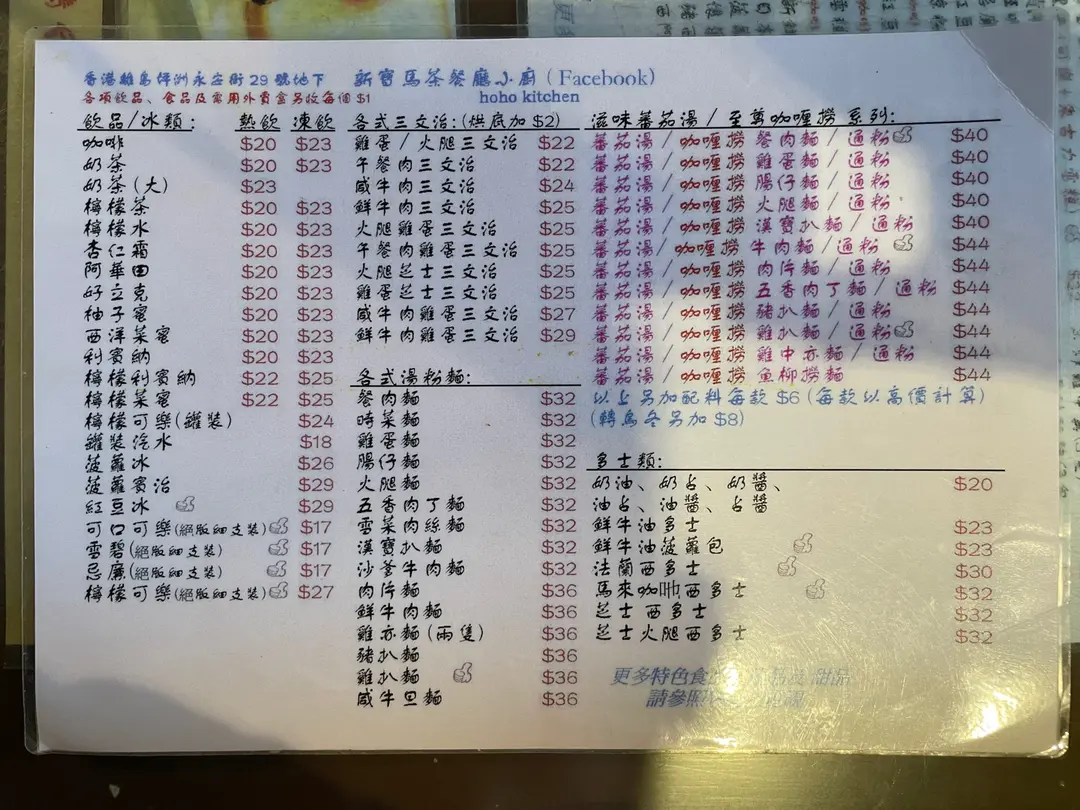 香港離島坪洲永安街 29 號地下
新寶馬茶餐廳小廚 (Facebook)
各項飲品、食品及需用外賣盒另收每個 $1
hoho kitchen
飲品/冰類: 熱飲 凍飲
咖啡 $20 $23
奶茶 $20 $23
奶茶(大) $23
檸檬茶 $20 $23
檸檬水 $20 $23
杏仁霜 $20 $23
阿華田 $20 $23
好立克 $20 $23
柚子蜜 $20 $23
西洋菜蜜 $20 $23
利賓納 $20 $23
檸檬利賓納 $22 $25
檸檬菜蜜 $22 $25
檸檬可樂(罐裝) $24
罐裝汽水 $18
菠蘿冰 $26
菠蘿賓治 $29
紅豆冰 $29
可口可樂(絕版細支裝) $17
雪碧(絕版細支裝) $17
忌廉(絕版細支裝) $17
檸檬可樂(絕版細支裝) $27
各式三文治:(烘底加 $2)
雞蛋/火腿三文治 $22
午餐肉三文治 $22
咸牛肉三文治 $24
鮮牛肉三文治 $25
火腿雞蛋三文治 $25
午餐肉雞蛋三文治 $25
火腿芝士三文治 $25
雞蛋芝士三文治 $25
咸牛肉雞蛋三文治 $27
鮮牛肉雞蛋三文治 $29
各式湯粉麵:
餐肉麵 $32
時菜麵 $32
雞蛋麵 $32
腸仔麵 $32
火腿麵 $32
五香肉丁麵 $32
雪菜肉絲麵 $32
漢寶扒麵 $32
沙爹牛肉麵 $32
肉片麵 $36
鮮牛肉麵 $36
雞亦麵(兩隻) $36
豬扒麵 $36
雞扒麵 $36
咸牛旦麵 $36
滋味蕃茄湯/至尊咖喱撈 系列:
蕃茄湯/咖喱撈 餐肉麵/通粉 $40
蕃茄湯/咖喱撈 雞蛋麵/通粉 $40
蕃茄湯/咖喱撈 腸仔麵/通粉 $40
蕃茄湯/咖喱撈 火腿麵/通粉 $40
蕃茄湯/咖喱撈 漢寶扒麵/通粉 $40
蕃茄湯/咖喱撈 牛肉麵/通粉 $44
蕃茄湯/咖喱撈 肉片麵/通粉 $44
蕃茄湯/咖喱撈 五香肉丁麵/通粉 $44
蕃茄湯/咖喱撈 豬扒麵/通粉 $44
蕃茄湯/咖喱撈 雞扒麵/通粉 $44
蕃茄湯/咖喱撈 雞中亦麵/通粉 $44
蕃茄湯/咖喱撈 魚柳撈麵 $44
以上另加配料每款 $6 (每款以高價計算)
(轉烏冬另加 $8)
多士類:
奶油、奶占、奶醬、 $20
油占、油醬、占醬
鮮牛油多士 $23
鮮牛油菠蘿包 $23
法蘭西多士 $30
馬來咖吔西多士 $32
芝士西多士 $32
芝士火腿西多士 $32
更多特色食 甜品
請參照